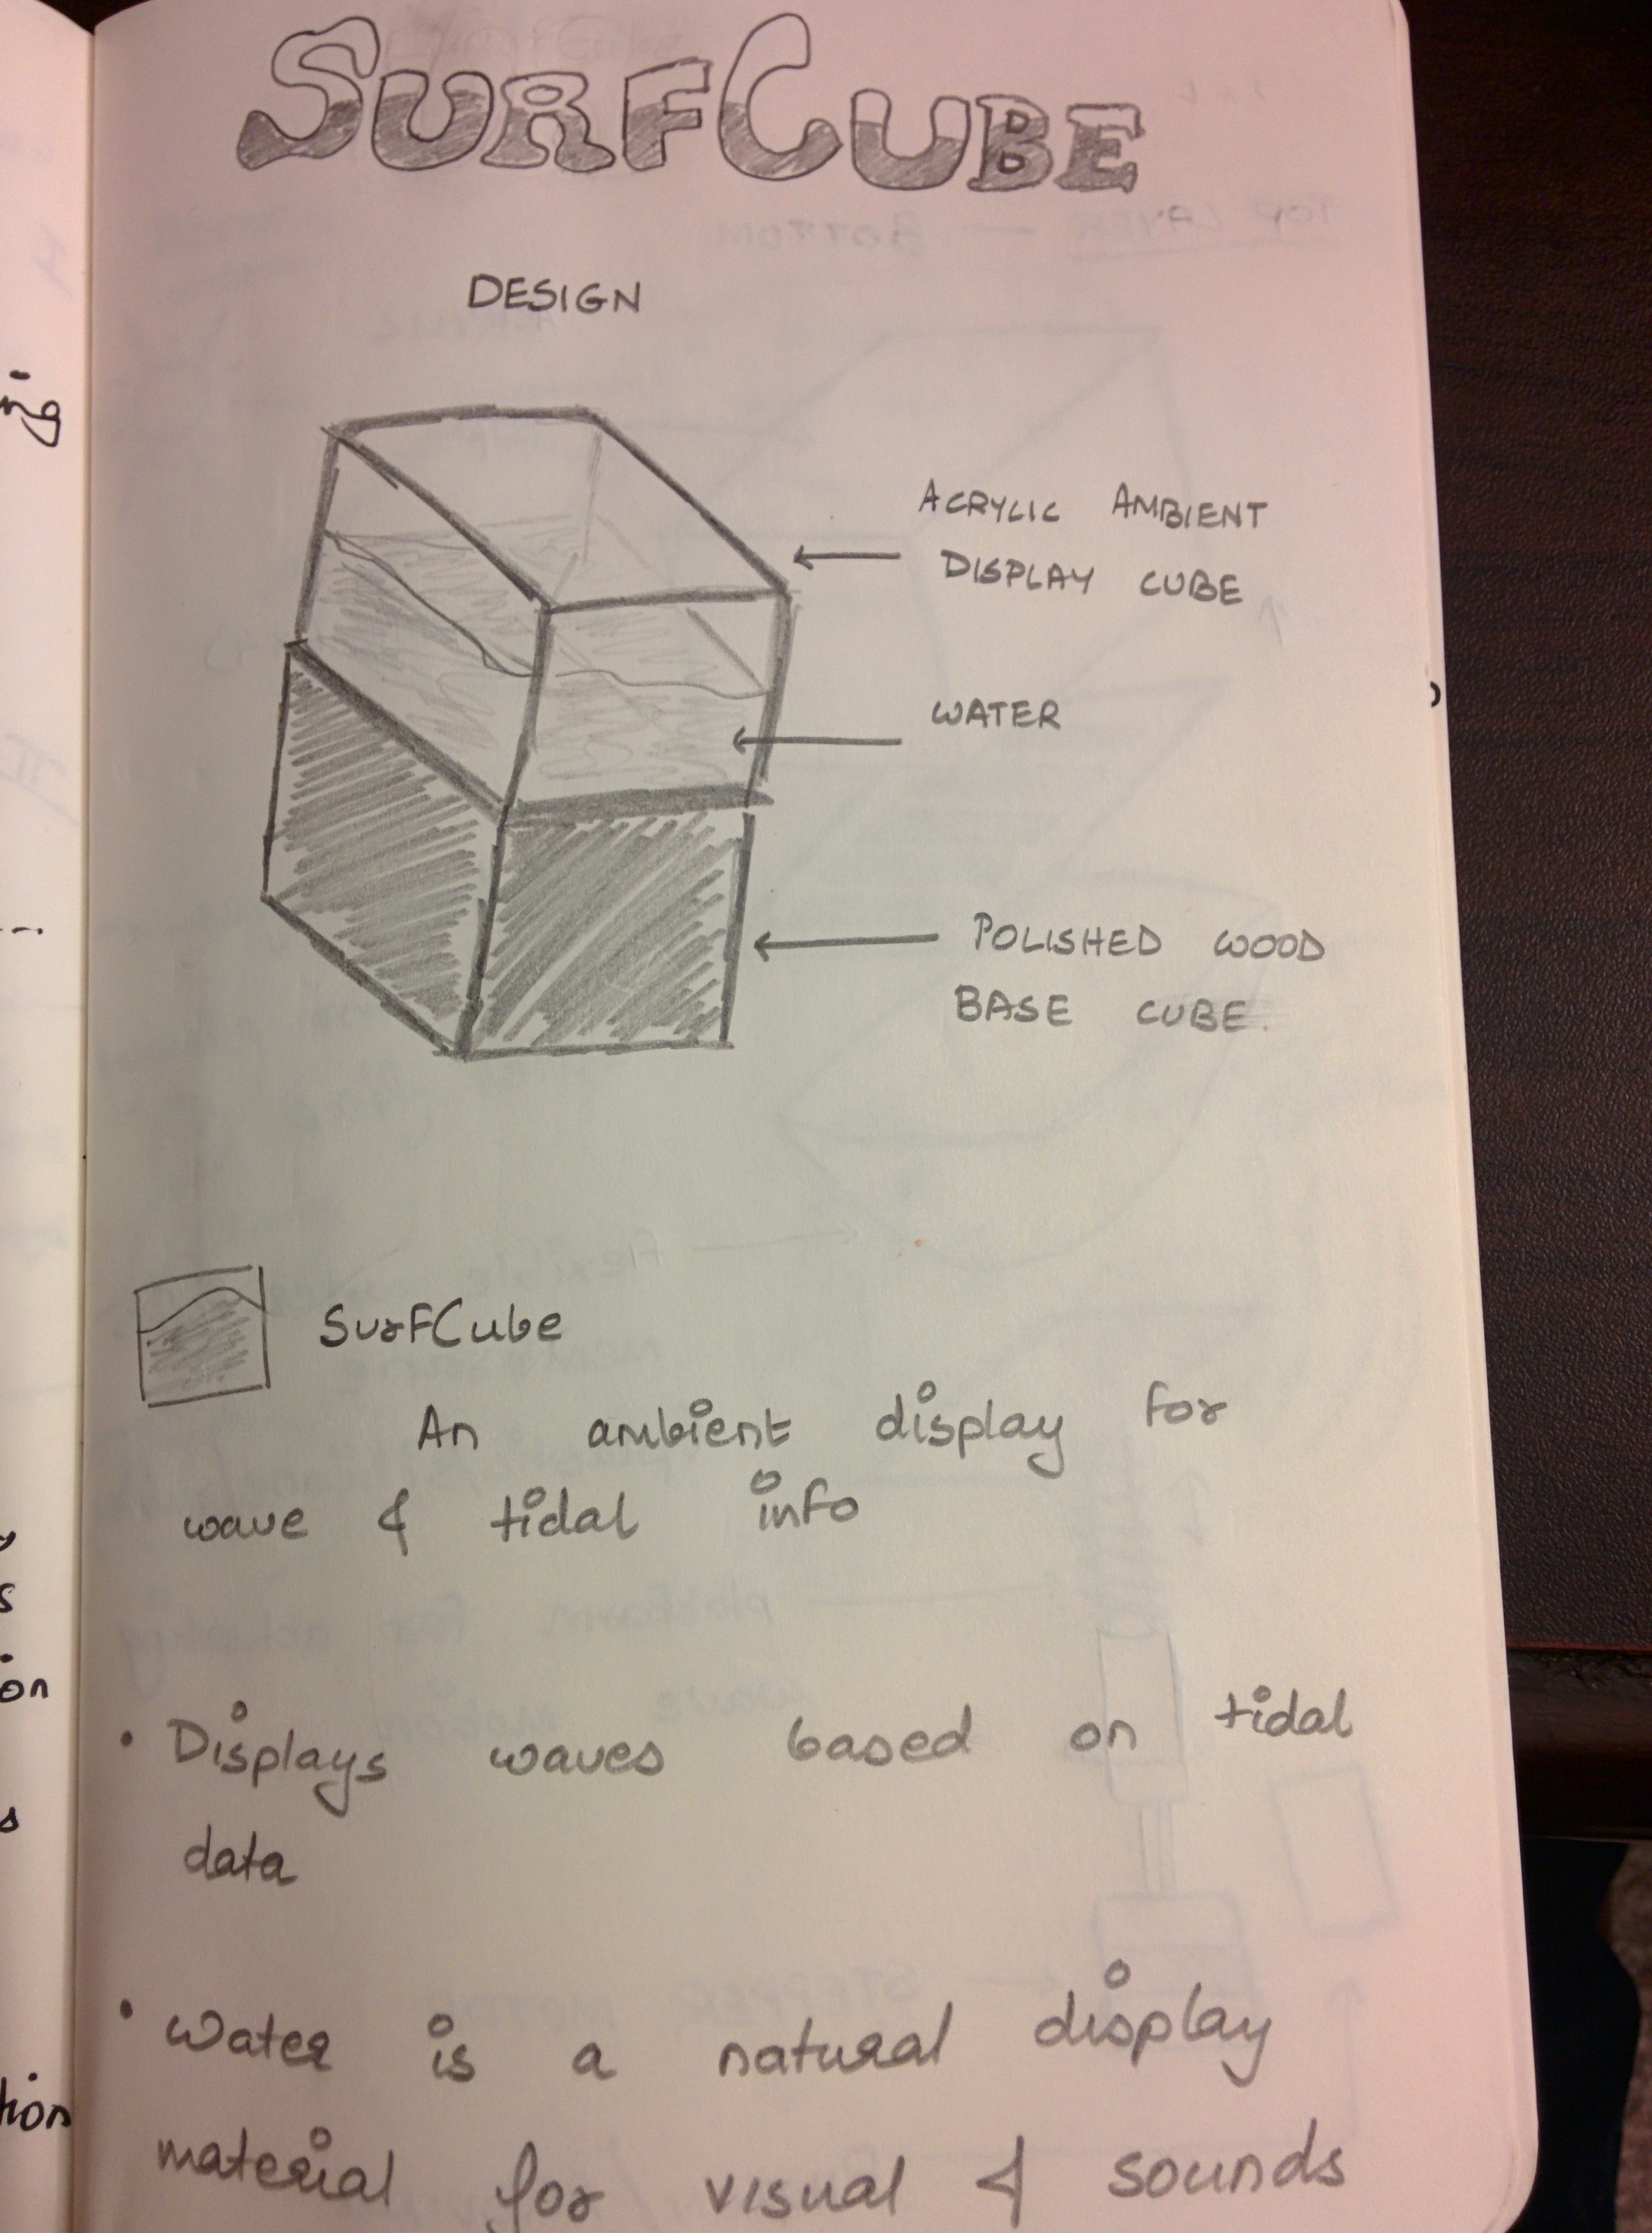 SURFCUBE
DESIGN
ACRYLIC AMBIENT
DISPLAY CUBE
WATER
POLISHED WOOD
BASE CUBE.
SurfCube
An ambient display for
wave & tidal info
• Displays waves based on tidal
data
• Water is a natural display
material for visual & sounds